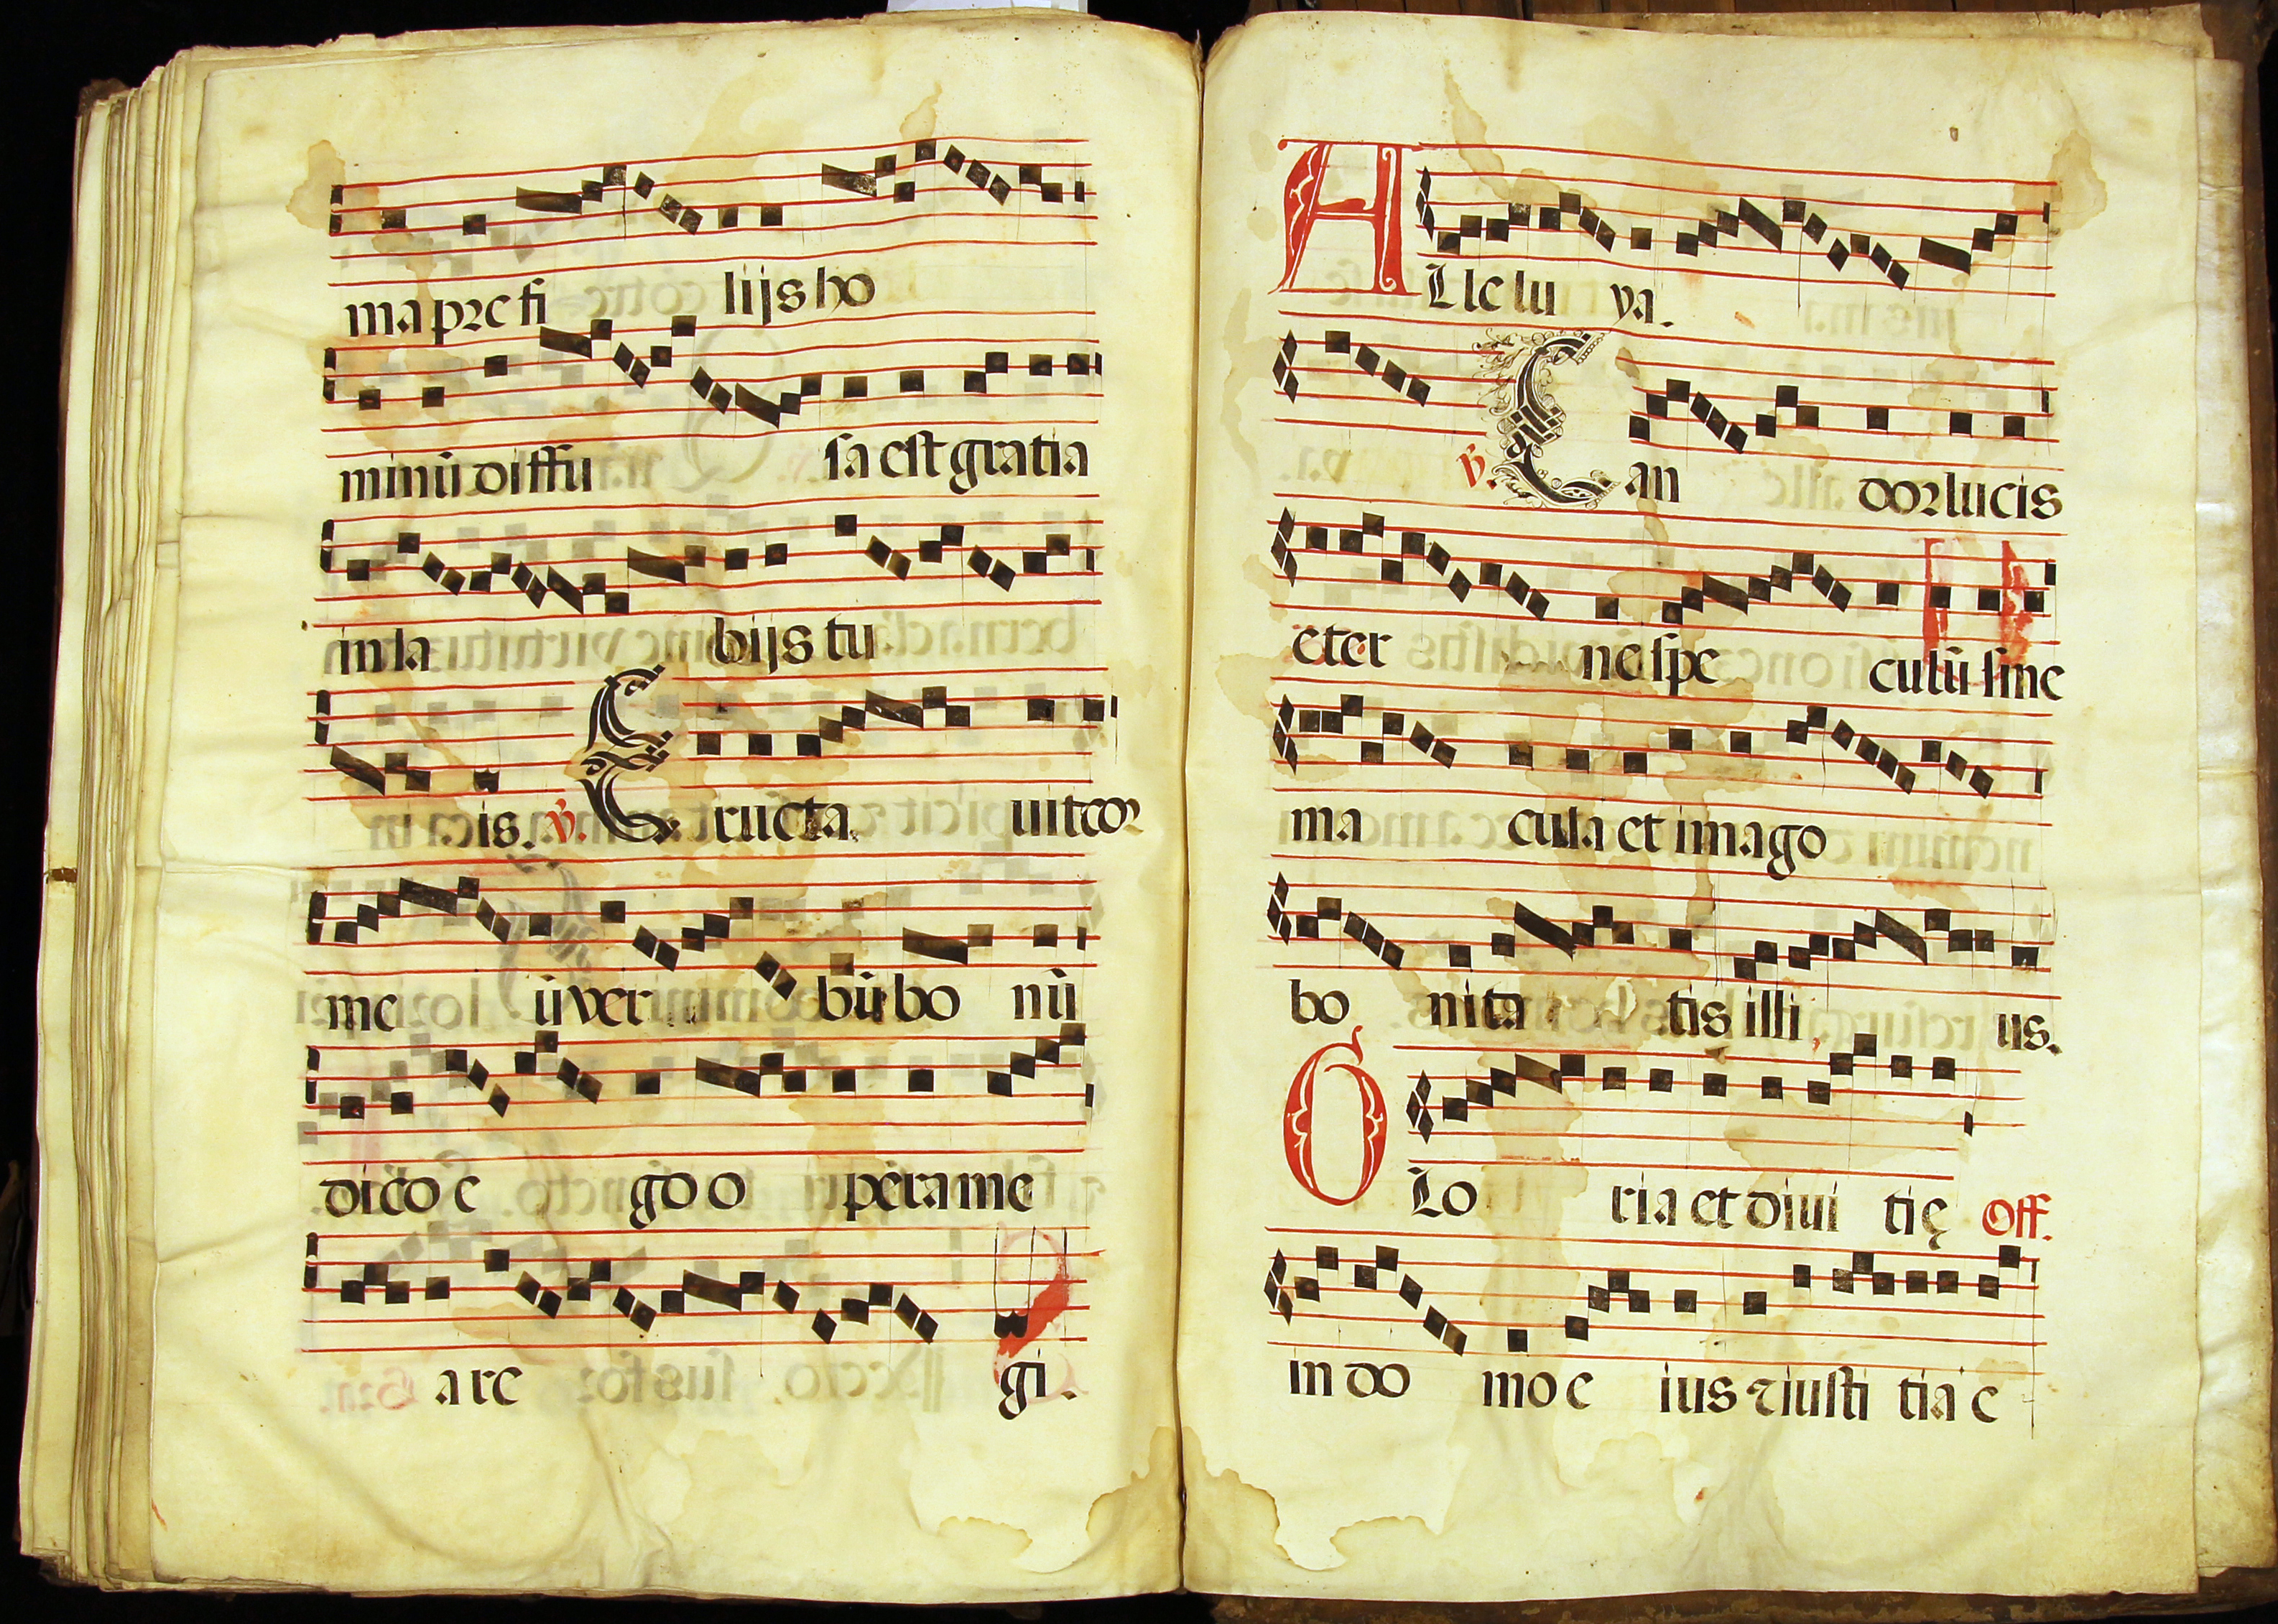 ma pre fi lijs ho
minū diffu sa est gratia
in la bijs tu
is. ℣. Eructa uit cor
me ū ver bū bo nū
dico e go o pera me
a re gi.
Alle lu ya.
℣. Can dor lucis
eter ne spe culū sine
ma cula et imago
bo nita tis illi us.
Glo ria et diui tię Off.
in do mo e ius ⁊ iusti tia e